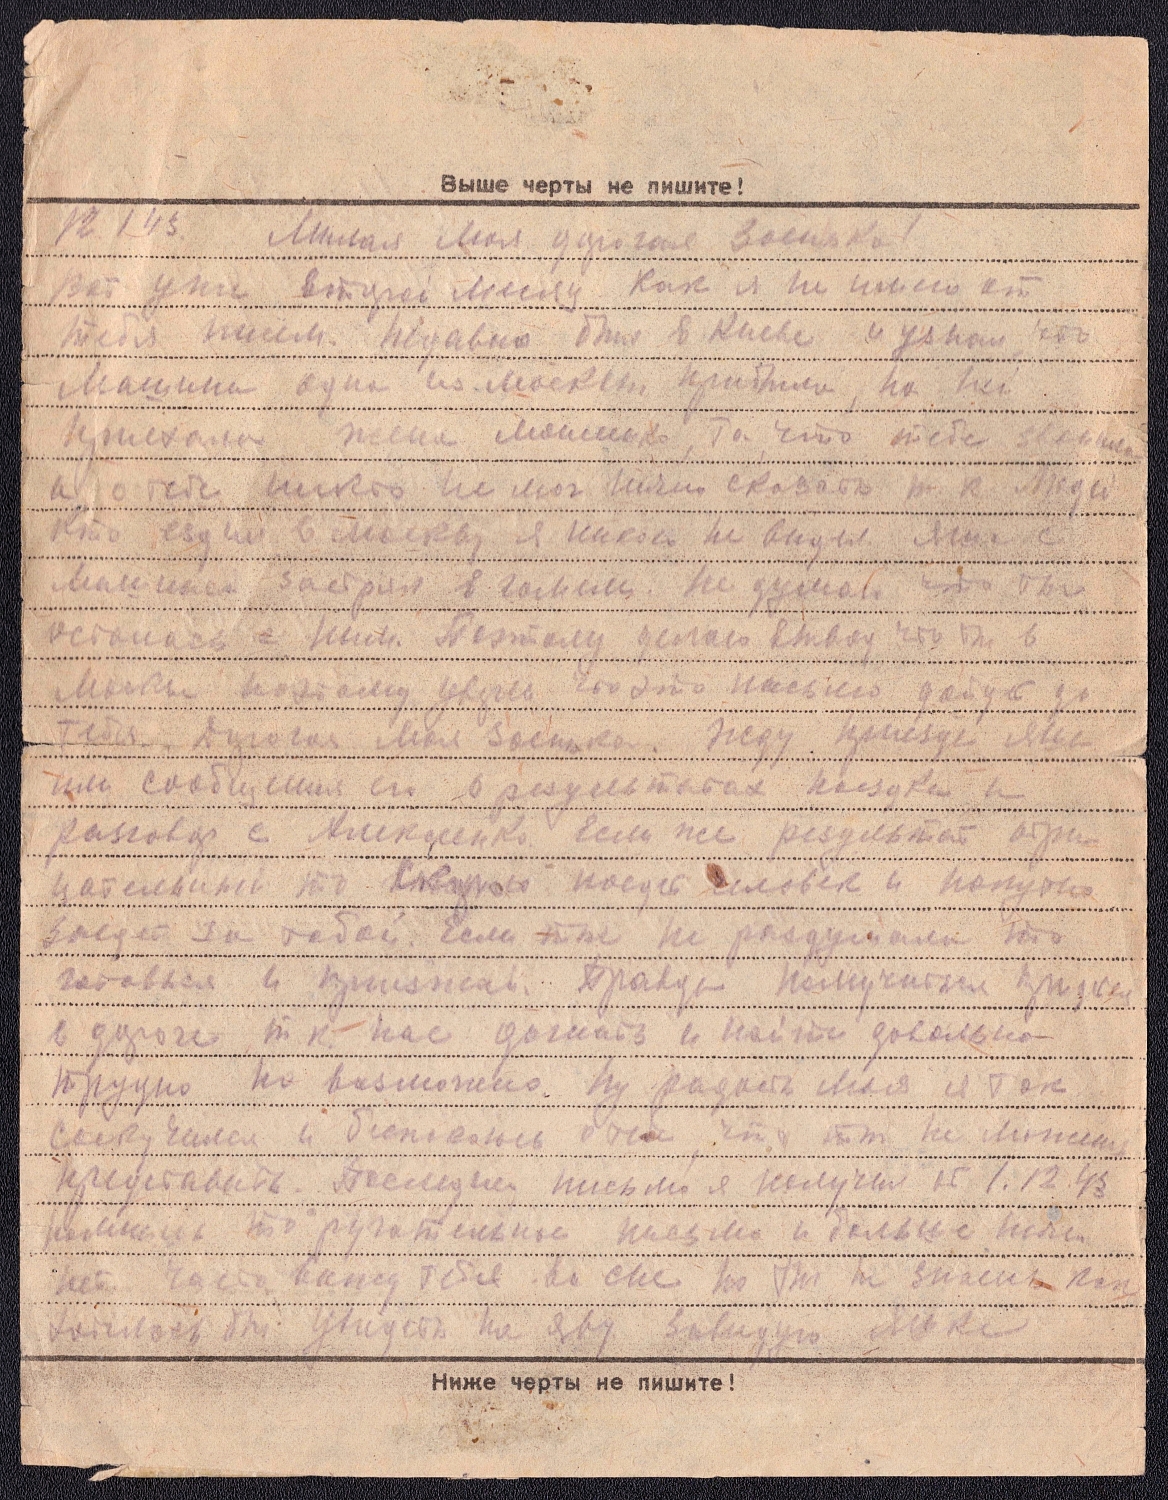 Выше черты не пишите!
12.1.43. Милая моя дорогая Зосинька!
Вот уже второй месяц как я не имею от
тебя писем. Недавно был в Киеве и узнал, что
машина одна из Москвы прибыла, на ней
приехала жена та, что тебе звонила
а о тебе никто не мог ничего сказать т.к. людей
кто ездил в Москву я никого не видел. Яша с
машиной застрял в Гомеле. Не думаю что ты
осталась с ним. Поэтому делаю вывод что ты в
Москве поэтому уверен что это письмо дойдет до
тебя. Дорогая моя Зосинька. Жду приезда Яши
или сообщения его о результатах поездки и
разговор с Если же результат отри-
цательный то поедет человек и попутно
заедет за тобой. Если ты не раздумала то
готовься и приезжай. Правда получиться
в дороге т.к. нас догнать и найти довольно
трудно но возможно. Ну радость моя я так
соскучился и беспокоюсь о тебе, что ты не можешь
представить. Последнее письмо я получил от 1.12.43
помнишь то ругательное письмо и больше
нет. Часто вижу тебя во сне но ты не знаешь как
хотелось бы увидеть на яву завидую Яшке
Ниже черты не пишите!